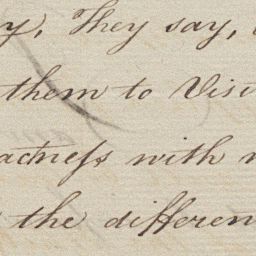 y, They say,
them to Visi
actneſs with
the differen